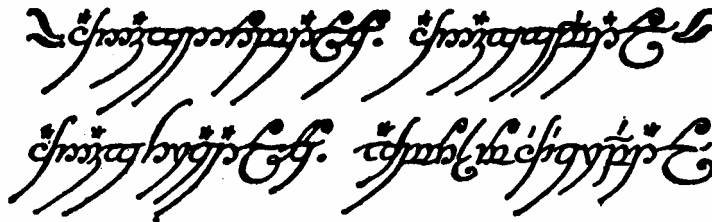 ash nazg durbatulûk, ash nazg gimbatul,
ash nazg thrakatulûk, agh burzum-ishi krimpatul